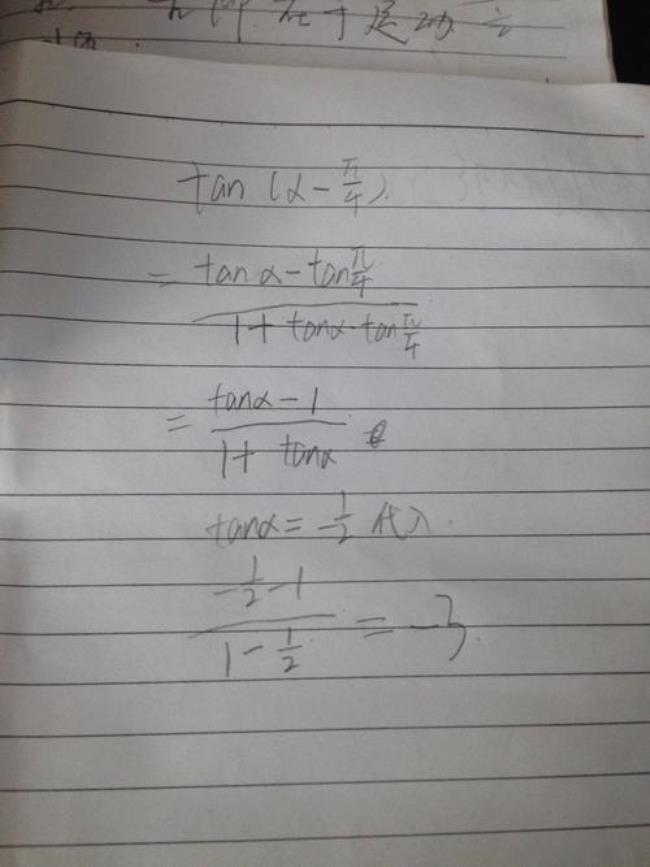 在于运动之
tan (α - π/4).
= (tanα - tan π/4) / (1 + tanα·tan π/4)
= (tanα - 1) / (1 + tanα)
tanα = -1/2 代入.
(-1/2 - 1) / (1 - 1/2) = -3.